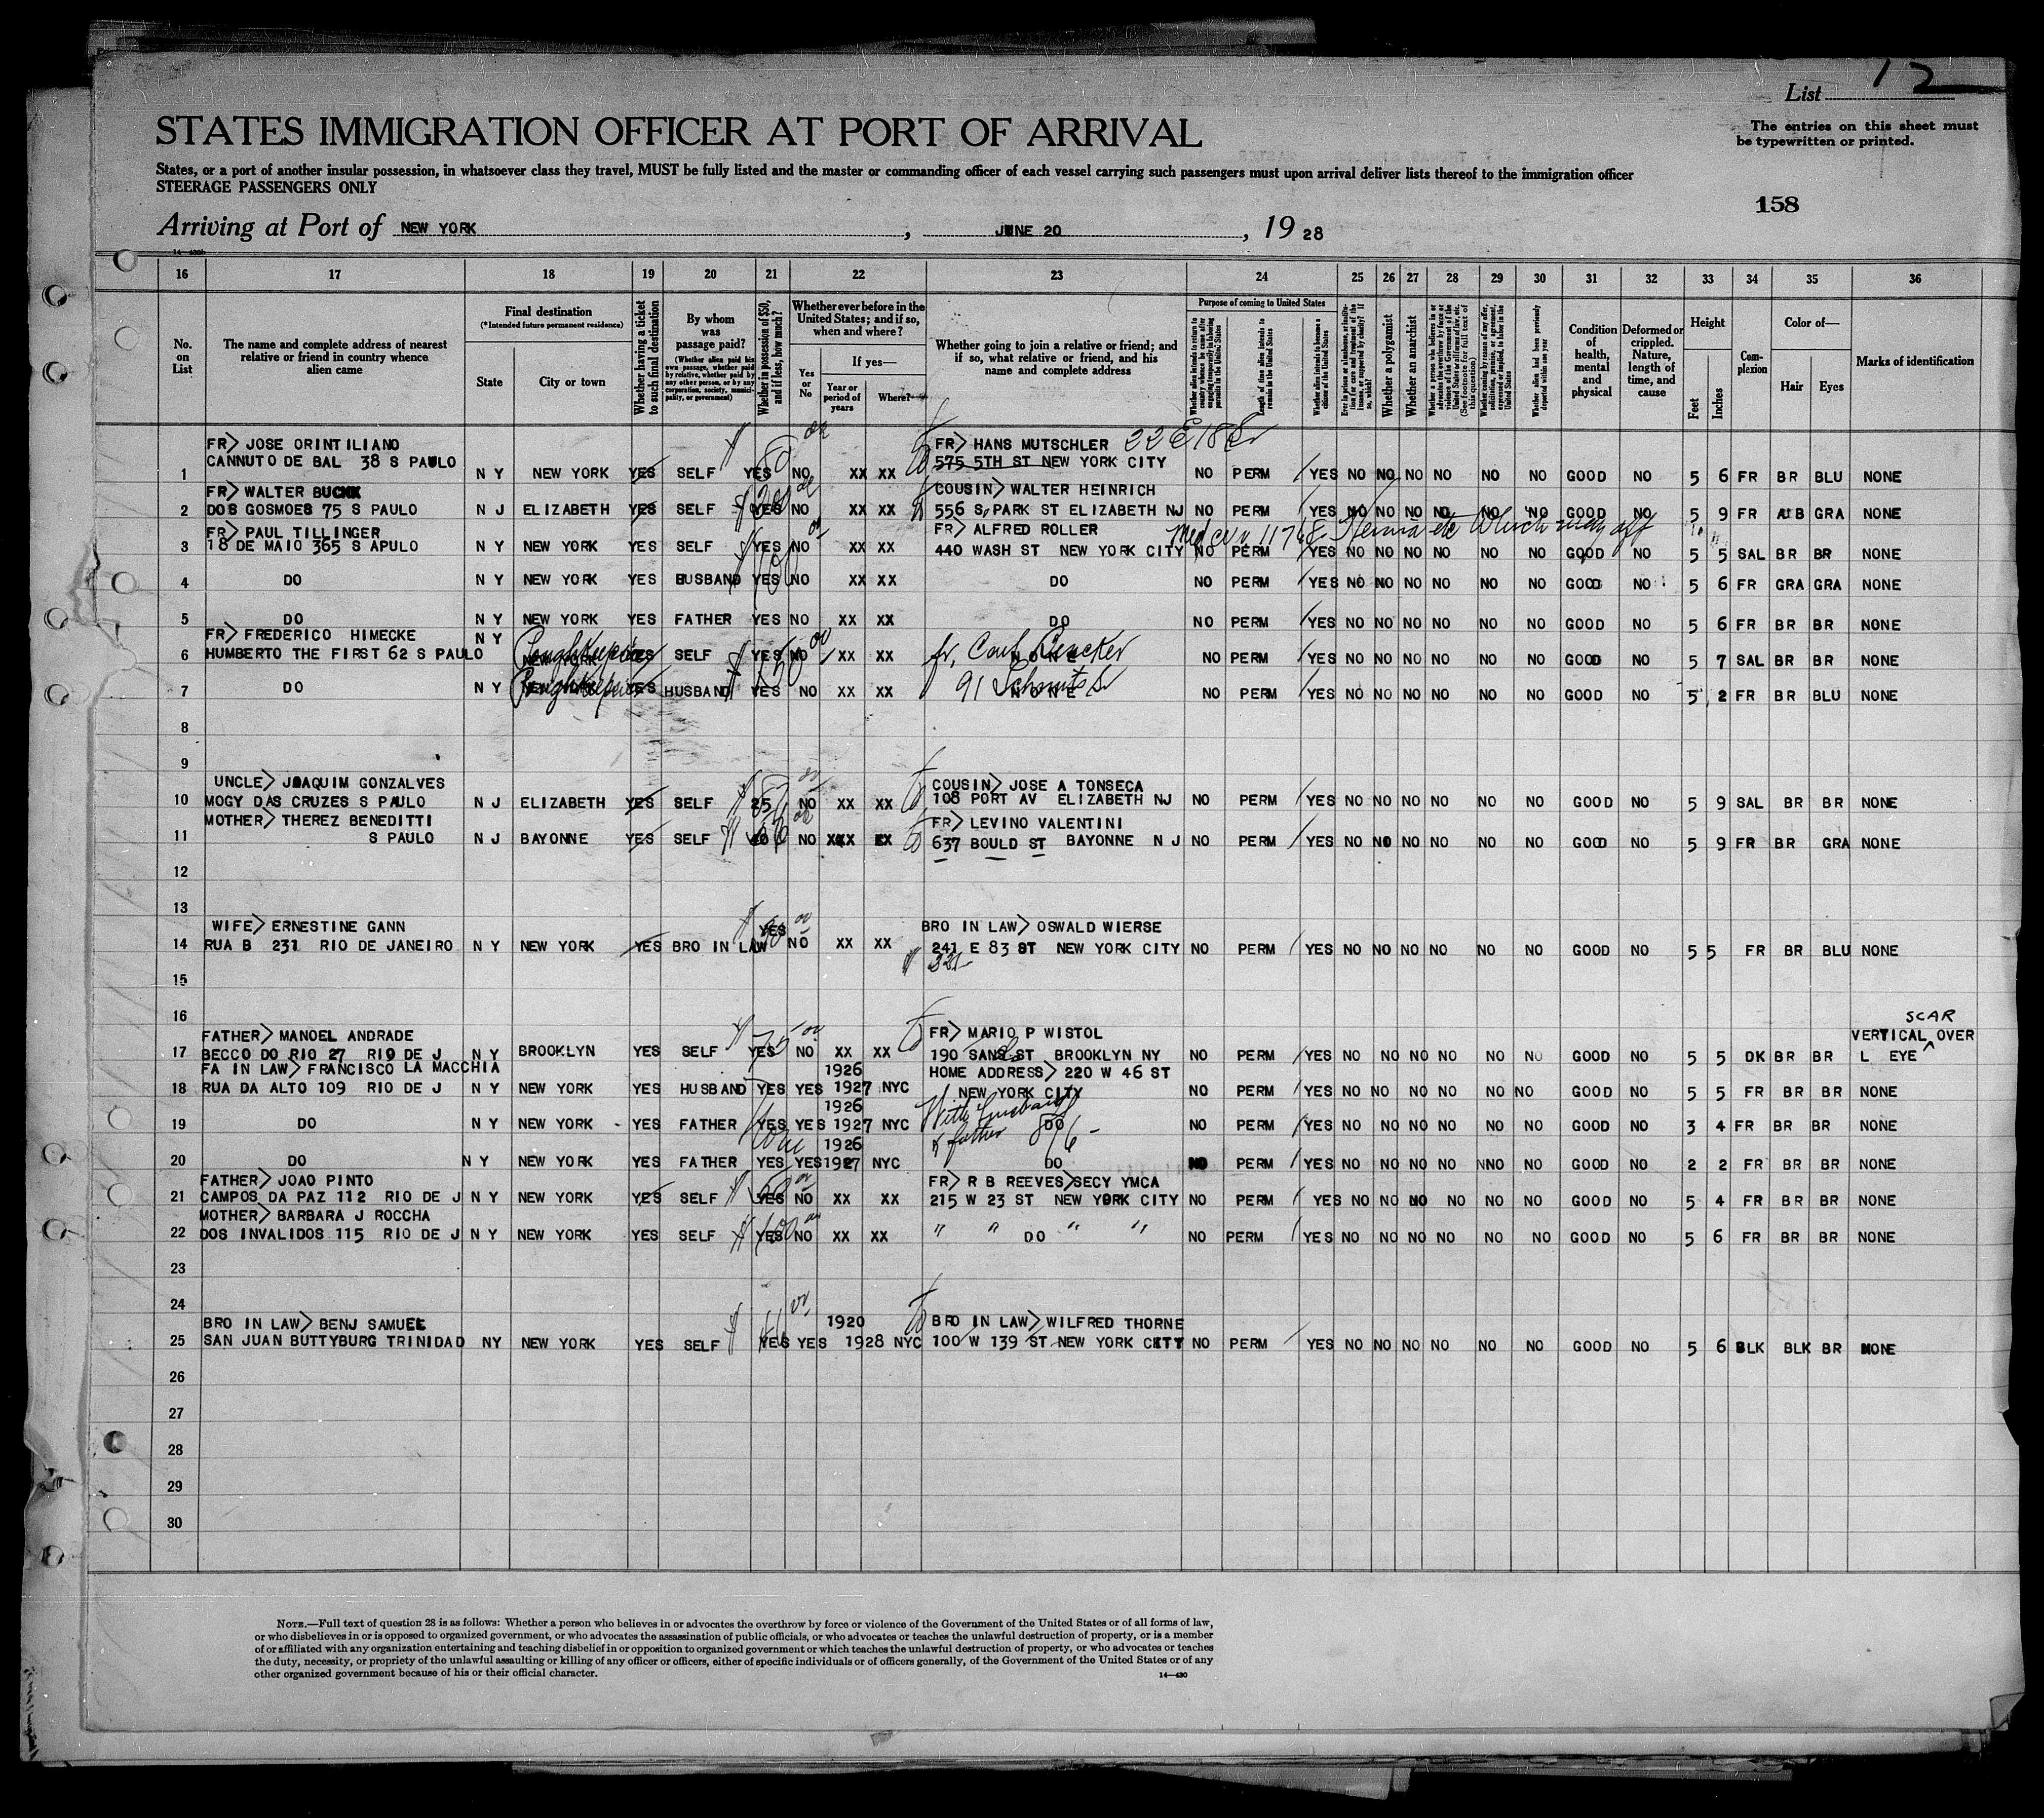 List 12
STATES IMMIGRATION OFFICER AT PORT OF ARRIVAL
The entries on this sheet must
be typewritten or printed.
States, or a port of another insular possession, in whatsoever class they travel, MUST be fully listed and the master or commanding officer of each vessel carrying such passengers must upon arrival deliver lists thereof to the immigration officer
STEERAGE PASSENGERS ONLY
158
Arriving at Port of NEW YORK , JUNE 20 , 19 28
16 17 18 19 20 21 22 23 24 25 26 27 28 29 30 31 32 33 34 35 36
No. on List
The name and complete address of nearest relative or friend in country whence alien came
Final destination
(*Intended future permanent residence)
State
City or town
Whether having a ticket to such final destination
By whom was passage paid?
(Whether alien paid his own passage, whether paid by relative, whether paid by any other person, or by any corporation, society, municipality, or government)
Whether in possession of $50, and if less, how much?
Whether ever before in the United States; and if so, when and where?
Yes or No
If yes—
Year or period of years
Where?
Whether going to join a relative or friend; and if so, what relative or friend, and his name and complete address
Purpose of coming to United States
Whether alien intends to return to country whence he came after engaging temporarily in laboring pursuits in the United States
Length of time alien intends to remain in the United States
Whether alien intends to become a citizen of the United States
Ever in prison or almshouse, or institution for care and treatment of the insane, or supported by charity? If so, which?
Whether a polygamist
Whether an anarchist
Whether a person who believes in or advocates the overthrow by force or violence of the Government of the United States or all forms of law, etc. (See footnote for full text of this question)
Whether coming by reason of any offer, solicitation, promise, or agreement, expressed or implied, to labor in the United States
Whether alien had been previously deported within one year
Condition of health, mental and physical
Deformed or crippled. Nature, length of time, and cause
Height
Feet
Inches
Complexion
Color of—
Hair
Eyes
Marks of identification
FR> JOSE ORINTILIANO FR> HANS MUTSCHLER 22 E 18
CANNUTO DE BAL 38 S PAULO 575 5TH ST NEW YORK CITY
1 N Y NEW YORK YES SELF YES NO XX XX NO PERM YES NO NO NO NO NO NO GOOD NO 5 6 FR BR BLU NONE
FR> WALTER BUCKK COUSIN> WALTER HEINRICH
2 DOS GOSMOES 75 S PAULO N J ELIZABETH YES SELF YES NO XX XX 556 S, PARK ST ELIZABETH NJ NO PERM YES NO NO NO NO NO NO GOOD NO 5 9 FR AUB GRA NONE
FR> PAUL TILLINGER FR> ALFRED ROLLER
3 18 DE MAIO 365 S APULO N Y NEW YORK YES SELF YES NO XX XX 440 WASH ST NEW YORK CITY NO PERM YES NO NO NO NO NO NO GOOD NO 5 5 SAL BR BR NONE
4 DO N Y NEW YORK YES HUSBAND YES NO XX XX DO NO PERM YES NO NO NO NO NO NO GOOD NO 5 6 FR GRA GRA NONE
5 DO N Y NEW YORK YES FATHER YES NO XX XX DO NO PERM YES NO NO NO NO NO NO GOOD NO 5 6 FR BR BR NONE
FR> FREDERICO HIMECKE N Y
6 HUMBERTO THE FIRST 62 S PAULO Poughkeepsie NEW YORK YES SELF YES NO XX XX NONE NO PERM YES NO NO NO NO NO NO GOOD NO 5 7 SAL BR BR NONE
7 DO N Y Poughkeepsie YES HUSBAND YES NO XX XX NONE 91 NO PERM YES NO NO NO NO NO NO GOOD NO 5 2 FR BR BLU NONE
8
9
UNCLE> JOAQUIM GONZALVES COUSIN> JOSE A TONSECA
10 MOGY DAS CRUZES S PAULO N J ELIZABETH YES SELF 25 NO XX XX 108 PORT AV ELIZABETH NJ NO PERM YES NO NO NO NO NO NO GOOD NO 5 9 SAL BR BR NONE
MOTHER> THEREZ BENEDITTI FR> LEVINO VALENTINI
11 S PAULO N J BAYONNE YES SELF 40 NO XXX XX 637 BOULD ST BAYONNE N J NO PERM YES NO NO NO NO NO NO GOOD NO 5 9 FR BR GRA NONE
12
13
WIFE> ERNESTINE GANN YES BRO IN LAW> OSWALD WIERSE
14 RUA B 231 RIO DE JANEIRO N Y NEW YORK YES BRO IN LAW NO XX XX 241 E 83 ST NEW YORK CITY NO PERM YES NO NO NO NO NO NO GOOD NO 5 5 FR BR BLU NONE
321
15
16
SCAR
FATHER> MANOEL ANDRADE FR> MARIO P WISTOL VERTICAL OVER
17 BECCO DO RIO 27 RIO DE J N Y BROOKLYN YES SELF YES NO XX XX 190 SANS ST BROOKLYN NY NO PERM YES NO NO NO NO NO NO GOOD NO 5 5 DK BR BR L EYE
FA IN LAW> FRANCISCO LA MACCHIA 1926 HOME ADDRESS> 220 W 46 ST
18 RUA DA ALTO 109 RIO DE J N Y NEW YORK YES HUSBAND YES YES 1927 NYC NEW YORK CITY NO PERM YES NO NO NO NO NO NO GOOD NO 5 5 FR BR BR NONE
1926 With husband
19 DO N Y NEW YORK - YES FATHER YES YES 1927 NYC DO NO PERM YES NO NO NO NO NO NO GOOD NO 3 4 FR BR BR NONE
1926 & father
20 DO N Y NEW YORK YES FATHER YES YES 1927 NYC DO NO PERM YES NO NO NO NO NO NO GOOD NO 2 2 FR BR BR NONE
FATHER> JOAO PINTO FR> R B REEVES>SECY YMCA
21 CAMPOS DA PAZ 112 RIO DE J N Y NEW YORK YES SELF YES NO XX XX 215 W 23 ST NEW YORK CITY NO PERM YES NO NO NO NO NO NO GOOD NO 5 4 FR BR BR NONE
MOTHER> BARBARA J ROCCHA
22 DOS INVALIDOS 115 RIO DE J N Y NEW YORK YES SELF YES NO XX XX " " DO " " NO PERM YES NO NO NO NO NO NO GOOD NO 5 6 FR BR BR NONE
23
24
BRO IN LAW> BENJ SAMUEL 1920 BRO IN LAW> WILFRED THORNE
25 SAN JUAN BUTTYBURG TRINIDAD NY NEW YORK YES SELF YES YES 1928 NYC 100 W 139 ST NEW YORK CITY NO PERM YES NO NO NO NO NO NO GOOD NO 5 6 BLK BLK BR NONE
26
27
28
29
30
NOTE.—Full text of question 28 is as follows: Whether a person who believes in or advocates the overthrow by force or violence of the Government of the United States or of all forms of law,
or who disbelieves in or is opposed to organized government, or who advocates the assassination of public officials, or who advocates or teaches the unlawful destruction of property, or is a member
of or affiliated with any organization entertaining and teaching disbelief in or opposition to organized government or which teaches the unlawful destruction of property, or who advocates or teaches
the duty, necessity, or propriety of the unlawful assaulting or killing of any officer or officers, either of specific individuals or of officers generally, of the Government of the United States or of any
other organized government because of his or their official character.
14—430